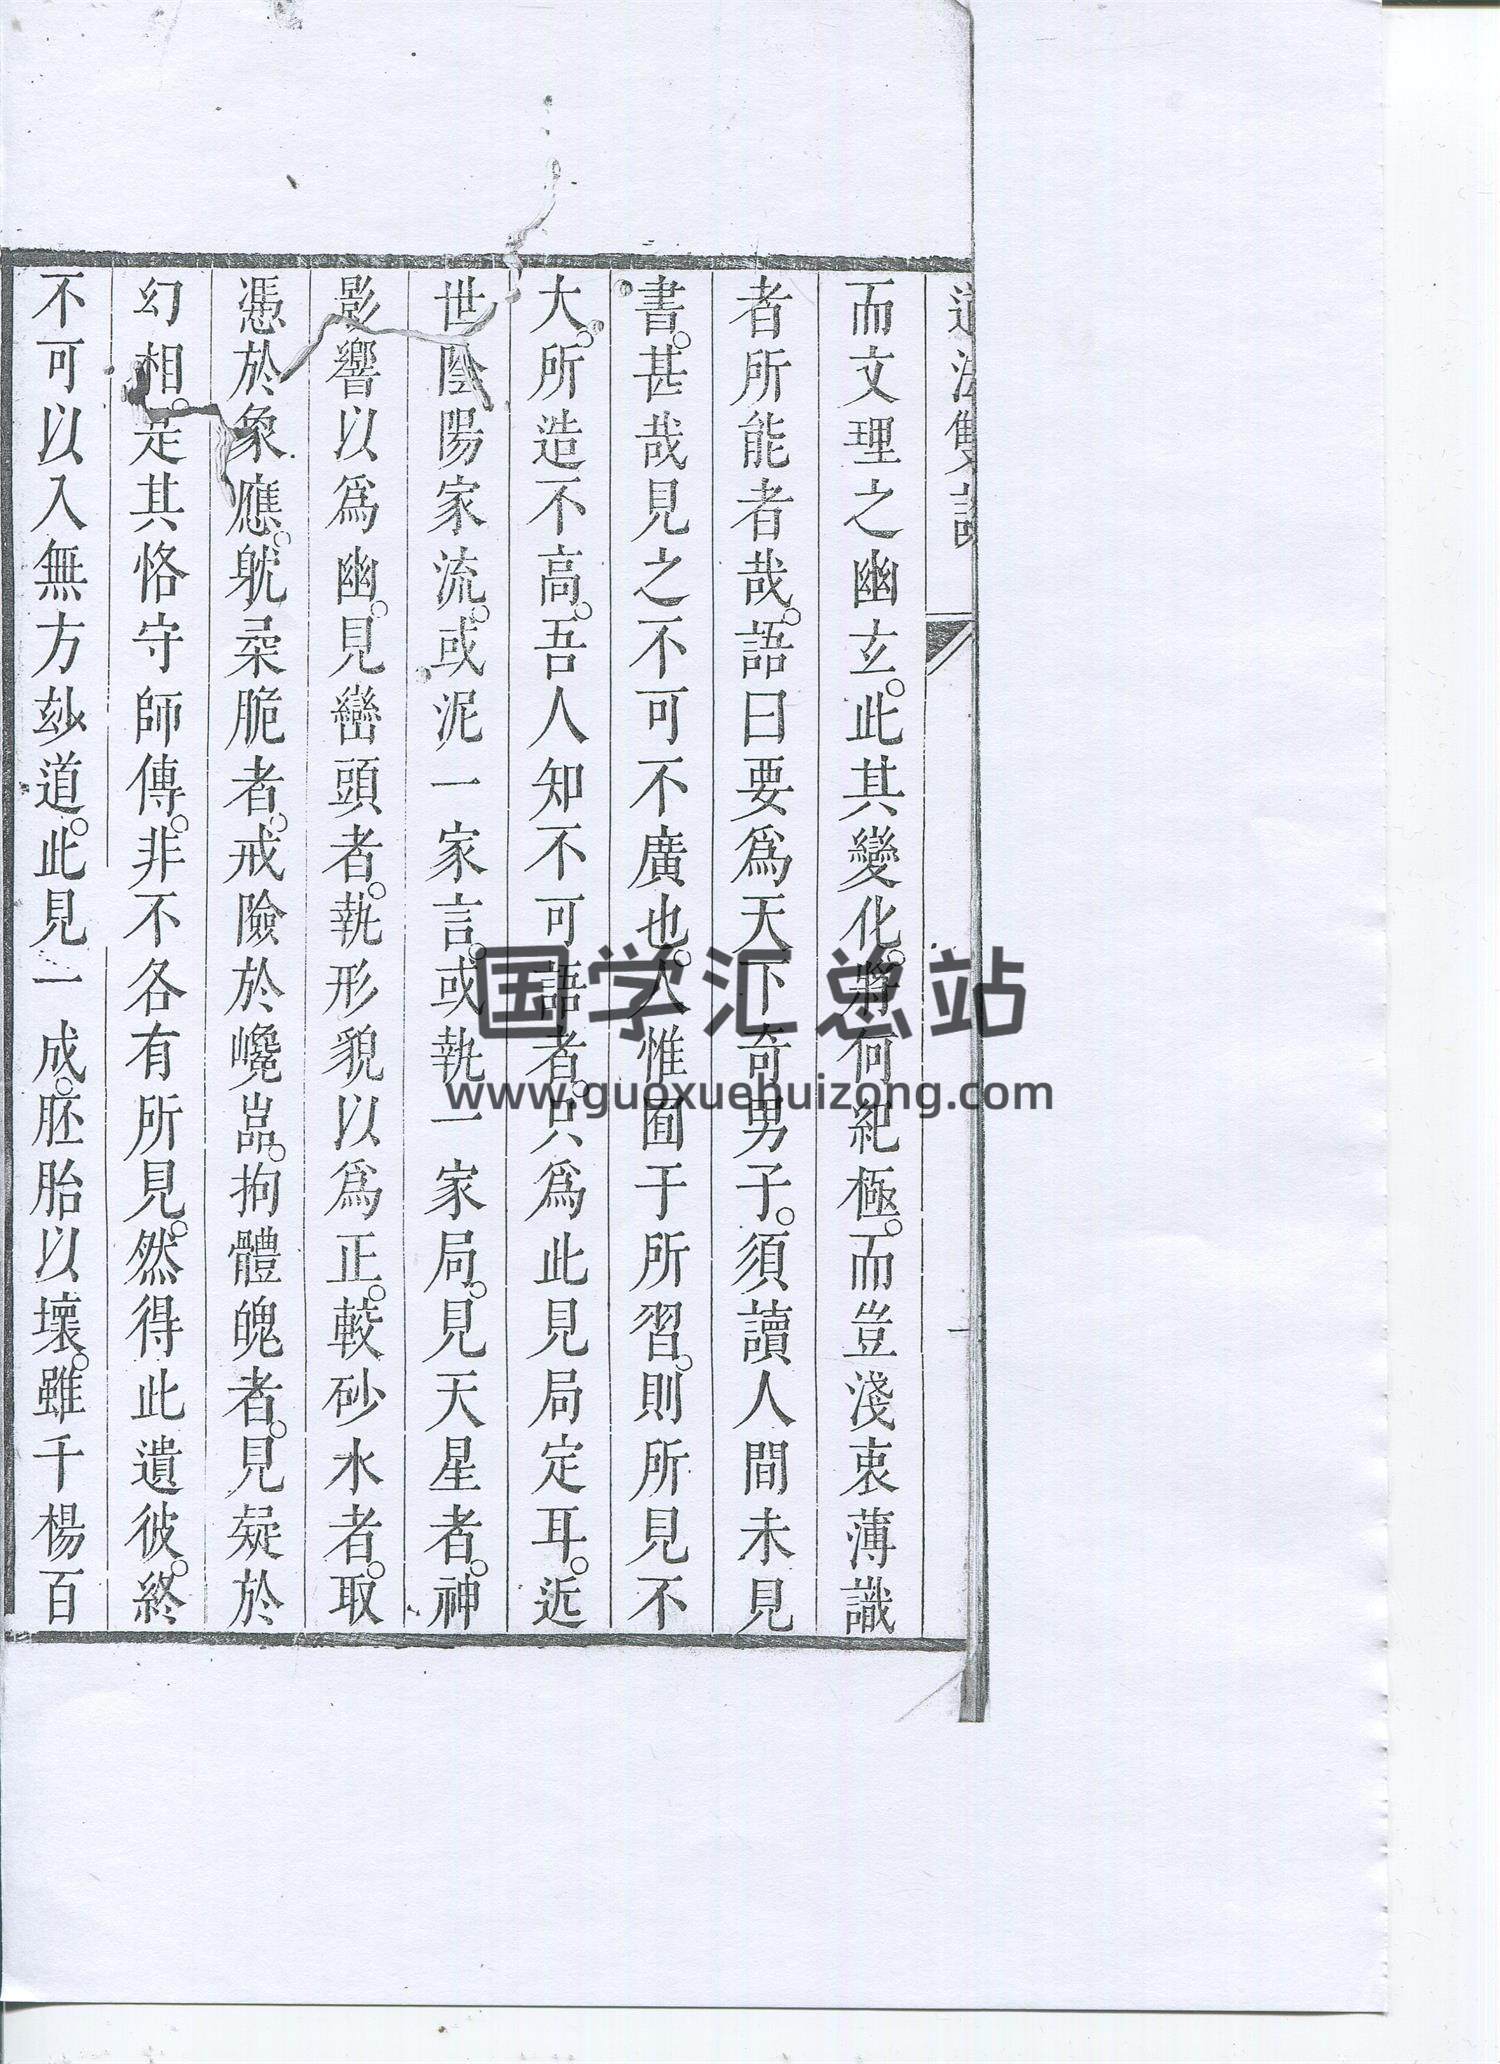 道法雙譚
一
而文理之幽玄。此其變化。將何紀極。而豈淺衷薄識
者所能者哉。語曰要爲天下奇男子。須讀人間未見
書。甚哉見之不可不廣也。人惟囿于所習。則所見不
大。所造不高。吾人知不可語者。只爲此見局定耳。近
世陰陽家流。或泥一家言。或執一家局。見天星者。神
影響以爲幽。見巒頭者。執形貌以爲正。較砂水者。取
憑於象應。躭桒脆者。戒險於巉嵓。拘體魄者。見疑於
幻相。是其恪守師傳。非不各有所見。然得此遺彼。終
不可以入無方玅道。此見一成。胚胎以壞。雖千楊百
国学汇总站
www.guoxuehuizong.com